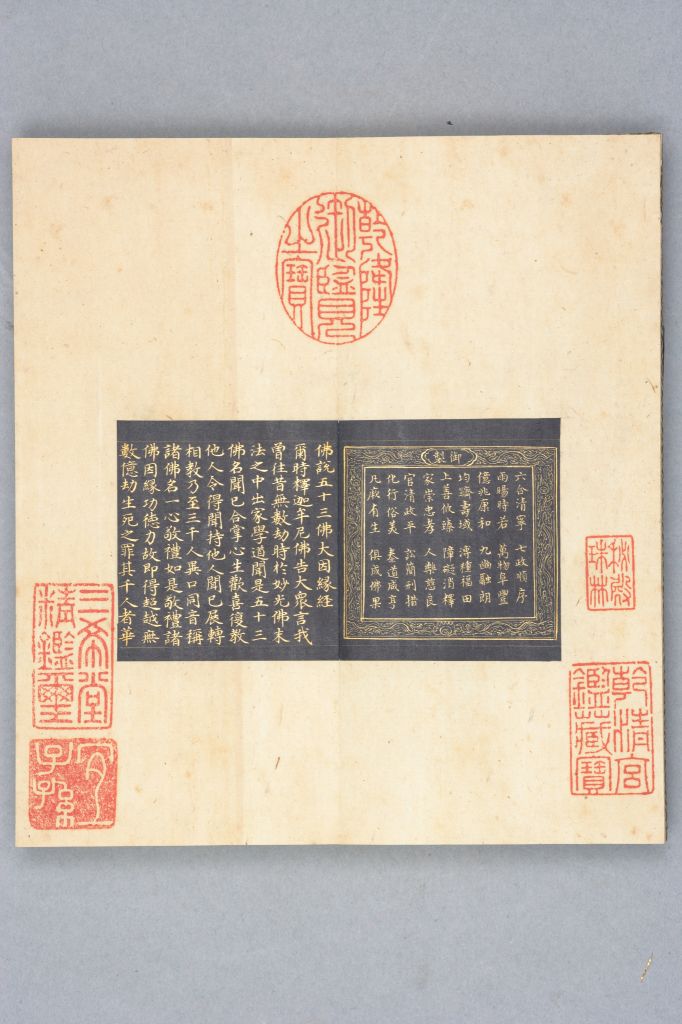 乾隆御覽之寶
秘殿珠林
乾清宮鑑藏寶
御製
六合清寧 七政順序
雨暘時若 萬物阜豐
億兆康和 九幽融朗
均躋壽域 溥種福田
上善攸臻 障礙消釋
家崇忠孝 人樂慈良
官清政平 訟簡刑措
化行俗美 泰道咸亨
凡厥有生 俱成佛果
佛說五十三佛大因緣經
爾時釋迦牟尼佛告大眾言我
曾往昔無數劫時於妙光佛末
法之中出家學道聞是五十三
佛名聞已合掌心生歡喜復教
他人令得聞持他人聞已展轉
相教乃至三千人異口同音稱
諸佛名一心敬禮如是敬禮諸
佛因緣功德力故即得超越無
數億劫生死之罪其千人者華
三希堂精鑑璽
宜子孫